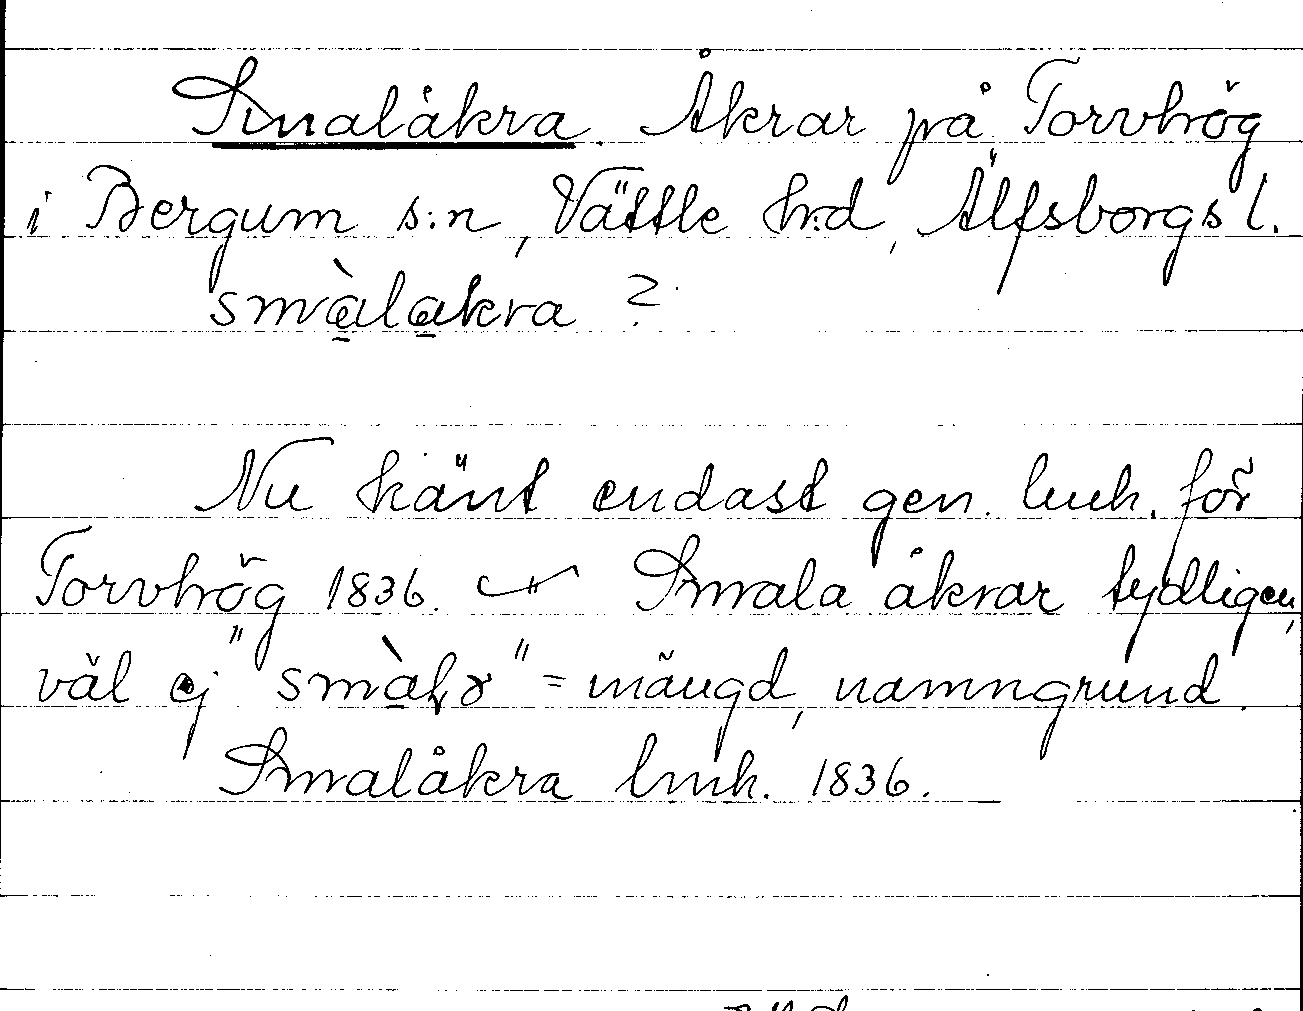 Smalåkra. Åkrar på Torvhög
i Bergum s:n, Vättle hrd, Älfsborgs l.
smàlakra ?
Nu känt endast gen. lmh. för
Torvhög 1836. Smala åkrar tydligen,
väl ej "smàlɤ" = mängd, namngrund.
Smalåkra lmh. 1836.